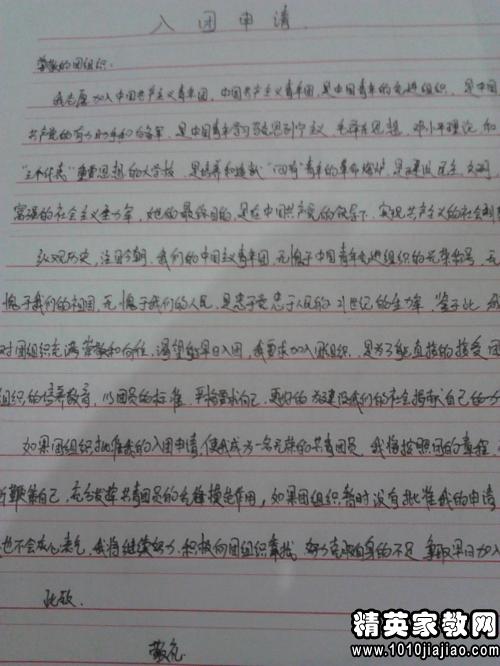 入团申请
尊敬的团组织:
我志愿加入中国共产主义青年团,中国共产主义青年团,是中国青年的先进组织,是中国
共产党的有力助手和后备军,是中国青年学习马克思列宁主义、毛泽东思想、邓小平理论和
"三个代表"重要思想的大学校,是培养和造就"四有"青年的革命熔炉,是建设民主,文明,
富强的社会主义生力军,她的最终目的,是在中国共产党的领导下,实现共产主义的社会制
纵观历史,注目今朝,我们的中国共青团,无愧于中国青年先进组织的光荣称号,无
愧于我们的祖国,无愧于我们的人民,是忠于党忠于人民的21世纪的生力军,鉴于此,我
对团组织充满崇敬和向往,渴望能早日入团,我要求加入团组织,是为了能直接的接受团
组织的培养教育,以团员的标准,严格要求自己,更好的为建设我们的社会贡献自己的力
如果团组织批准我的入团申请,使我成为一名光荣的共青团员,我将按照团的章程,
鞭策自己,充分发挥共青团员的先锋模范作用,如果团组织暂时没有批准我的申请
也不会灰心丧气,我将继续努力,积极向团组织靠拢,努力克服自身的不足,争取早日加入
此致.
敬礼
精英家教网
www.1010jiajiao.com